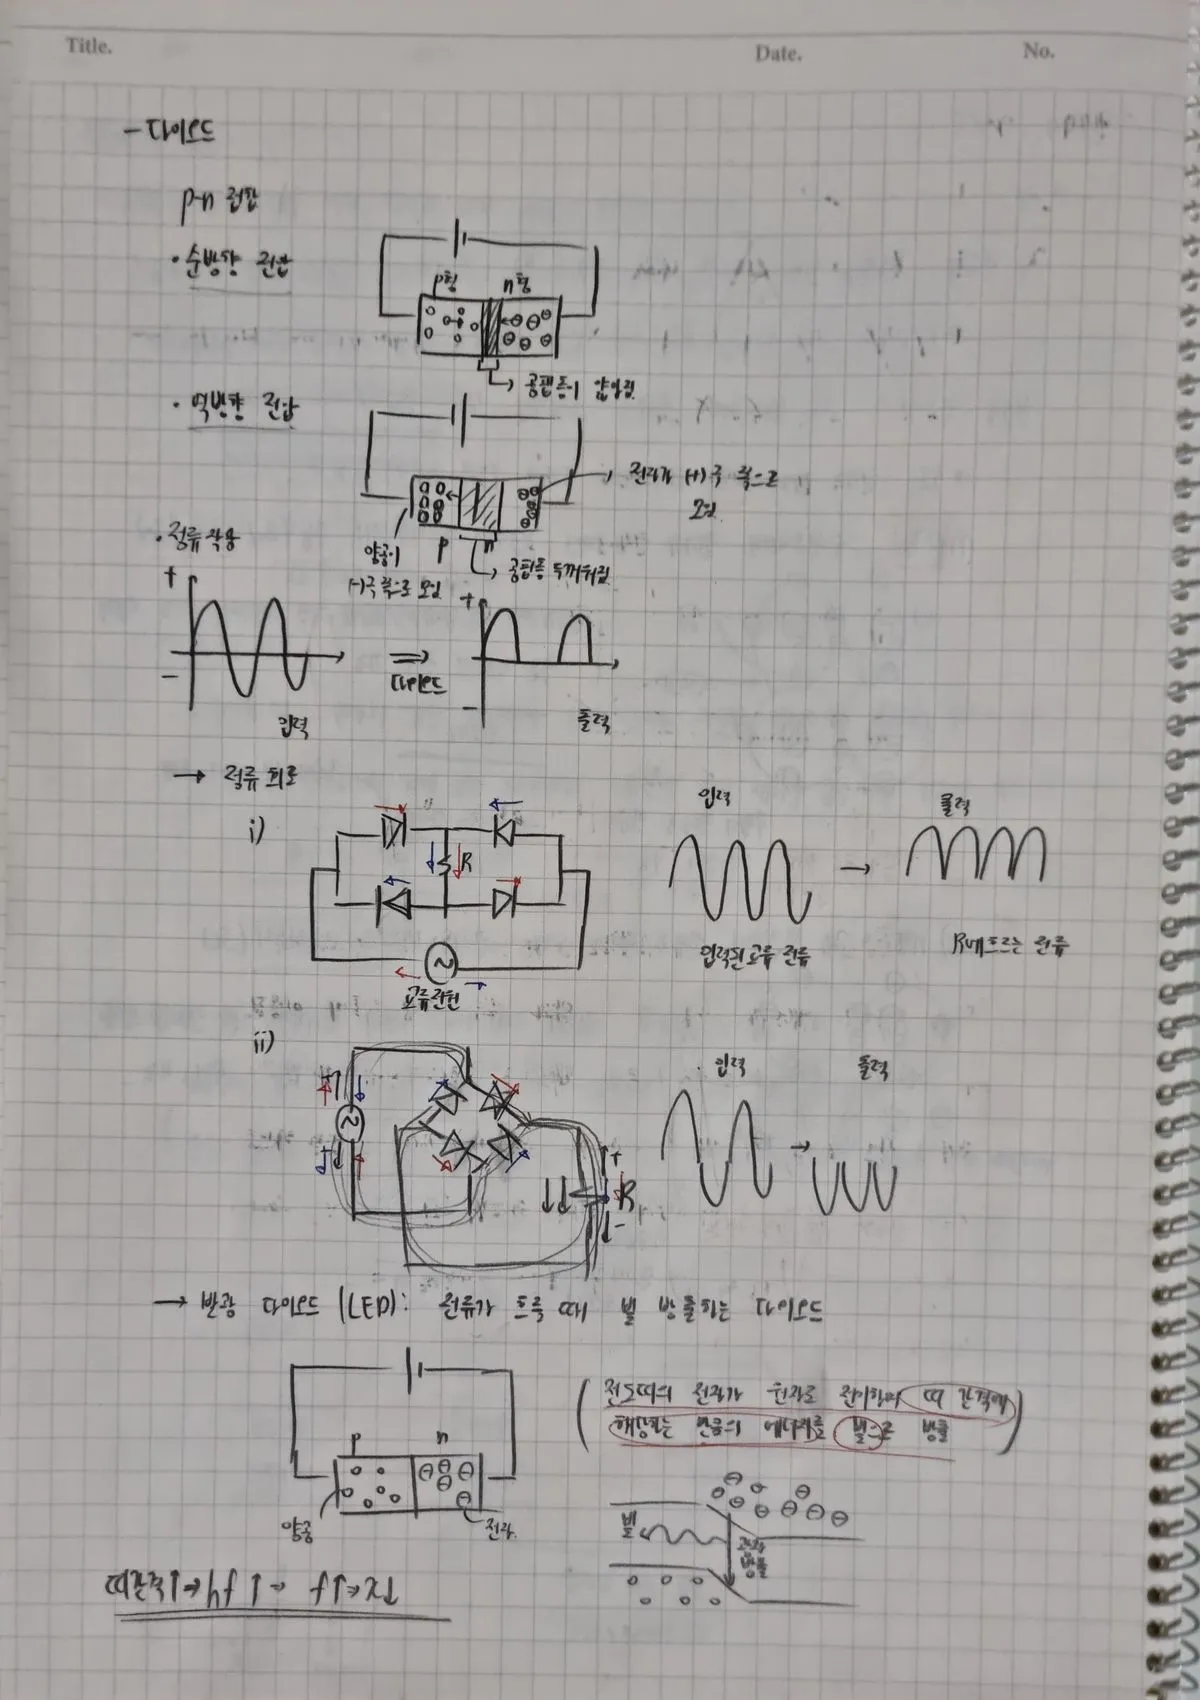 Title.
Date.
No.
- 다이오드
p-n 접합
· 순방향 전압
p형
n형
공핍층이 얇아짐
· 역방향 전압
전자가 (+)극 쪽으로
모임
양공이
(-)극 쪽으로 모임
p
n
공핍층 두꺼워짐
· 정류 작용
+
-
입력
⇒
다이오드
+
-
출력
→ 정류 회로
i)
R
~
교류전원
입력
출력
→
입력된 교류 전류
R에 흐르는 전류
ii)
~
+
R
-
입력
출력
→
→ 발광 다이오드 (LED): 전류가 흐를 때 빛 방출하는 다이오드
p
n
양공
전자
(전도띠의 전자가 원자로 전이하며 띠 간격에
해당하는 만큼의 에너지를 빛으로 방출)
빛
방출
띠간격↑→hf↑→f↑→λ↓